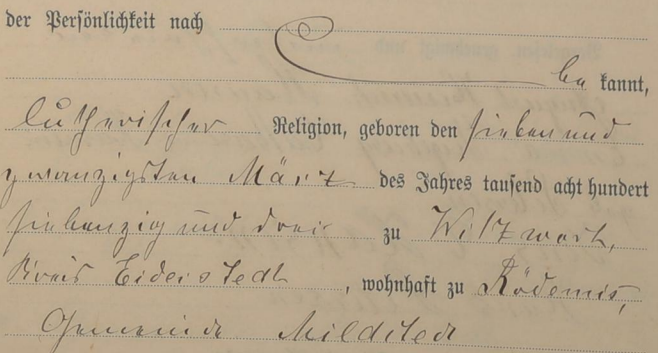 der Persönlichkeit nach
be kannt,
lutherischer Religion, geboren den sieben und
zwanzigsten März des Jahres tausend acht hundert
siebenzig und drei zu Witzwort,
Kreis Eiderstedt, wohnhaft zu Rödemis,
Gemeinde Mildsted